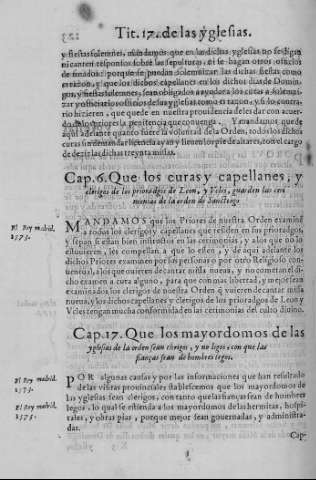 Tit. 17. de las yglesias.
y fiestas solemnes, mandamos que en las dichas yglesias no se digan
ni canten responsos sobre las sepulturas, ni se hagan otros oficios
de finados: porque se puedan solemnizar las dichas fiestas como
es razon, y que los dichos capellanes en los dichos dias de Domin-
gos, y fiestas solemnes, sean obligados a ayudar a los curas a solemni-
zar y oficiar los oficios de sus yglesias como es razon, y si lo contra-
rio hizieren, que quede en nuestra prouidencia de les dar con acuer-
do la penitencia que conuenga. Y mandamos que de
aqui adelante quanto fuere la voluntad de la Orden, todos los dichos
curas sin demandar licencia ayan y lieuen los pie de altares, con tal cargo
de dezir las dichas treynta missas.
Cap. 6. Que los curas y capellanes, y
clerigos de los prioradgos de Leon, y Vcles, guarden las ceri
monias de la orden de Sanctiago
El Rey madrid.
1573.
MANDAMOS que los Priores de nuestra Orden examinẽ
a todos los clerigos y capellanes que residen en sus prioradgos,
y sepan si estan bien instructos en las cerimonias, y alos que no lo
estuuieren, les compelan a que lo esten, y de aqui adelante los
dichos Priores examinen por sus personas o por otro Religioso con-
uentual, a los que quieren de cantar missa nueua, y no cometan el di-
cho examen a cura alguno, para que con mas libertad, y mejor sean
examinados los dichos clerigos de nuestra Orden q̃ uuieren de cantar missa
nueua, y los dichos capellanes y clerigos de los prioradgos de Leon y
Vcles tengan mucha conformidad en las cerimonias del culto diuino.
Cap. 17. Que los mayordomos de las
yglesias de la orden sean clerigos, y no legos, con que las
fianças sean de hombres legos.
El Rey madrid.
1573.
El Rey madrid.
1573.
POR algunas causas y por las informaciones que han resultado
de las visitas prouinciales establescemos que los mayordomos de
las yglesias sean clerigos, con tanto que las fianças sean de hombres
legos, lo qual se estienda a los mayordomos de las hermitas, hospi-
tales, y obras pias, porque mejor sean gouernadas, y administra-
das.
Cap